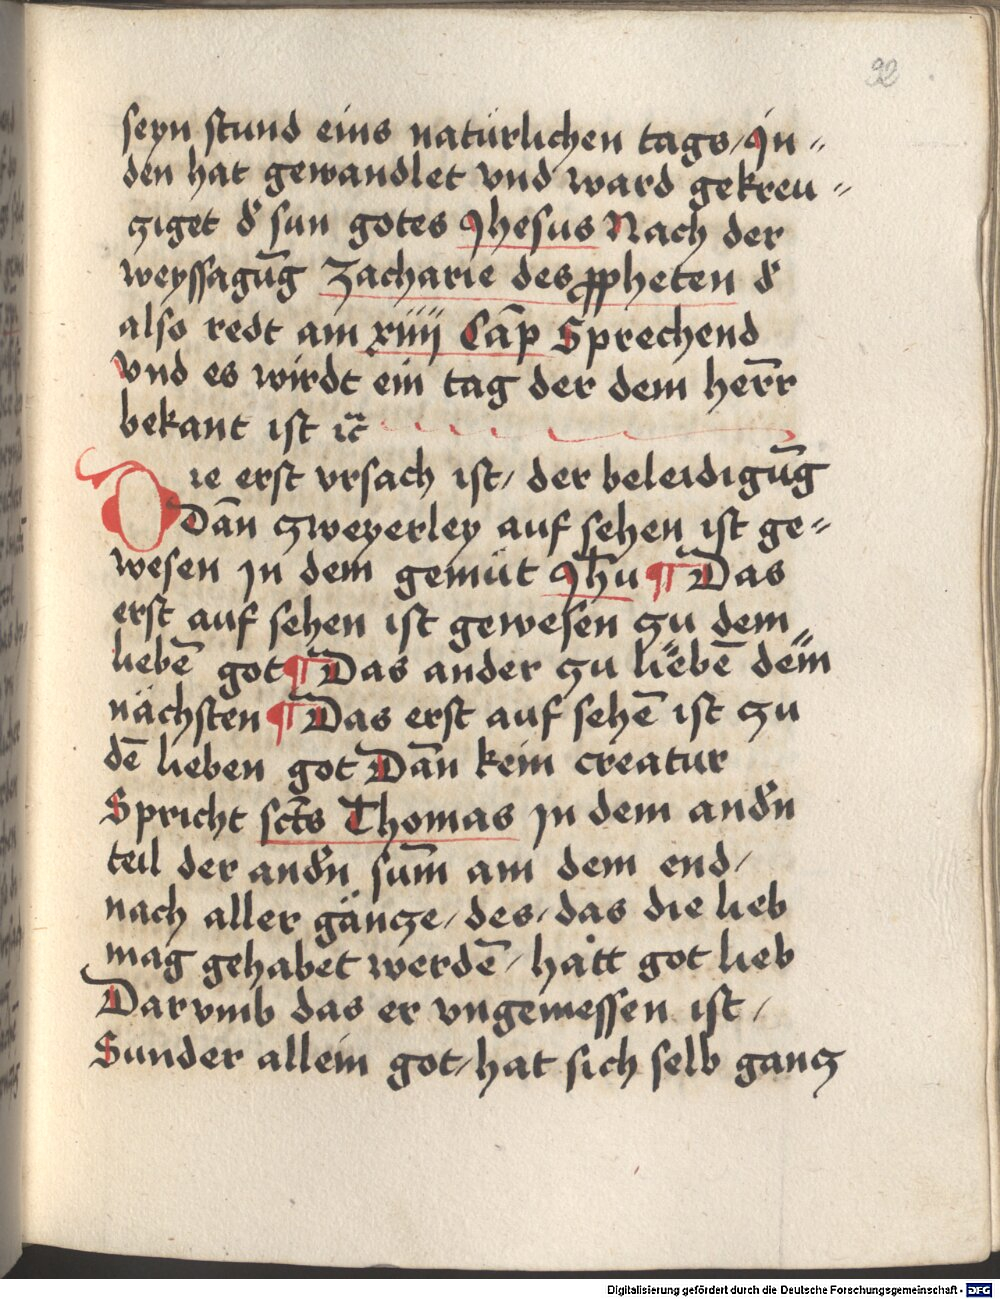 92
seyn stund eins natürlichen tags / Jn„
den hat gewandlet vnd ward gekreu„
ziget d̕ sun gotes Jhesus Nach der
weyssagūg Zacharie des ꝓpheten d̕
also redt am xiiij Cāp Sprechend
vnd es wirdt ein tag der dem her̄r
bekant ist ꝛc̄
Die erst vrsach ist / der beleidigūg
Dān zweyerley auf sehen ist ge„
wesen jn dem gemüt Jhū ¶ Das
erst auf sehen ist gewesen zu dem
liebē got ¶ Das ander zu liebē dem
nächsten ¶ Das erst auf sehē ist zu
dē lieben got Dān kein creatur
Spricht sct̄s Thomas jn dem and̕n
teil der and̕n sum̄ am dem end /
nach aller gäncze / des / das die lieb
mag gehabet werdē / hatt got lieb
Darvmb das er vngemessen ist /
Sunder allein got / hat sich selb gancz
Digitalisierung gefördert durch die Deutsche Forschungsgemeinschaft - DFG